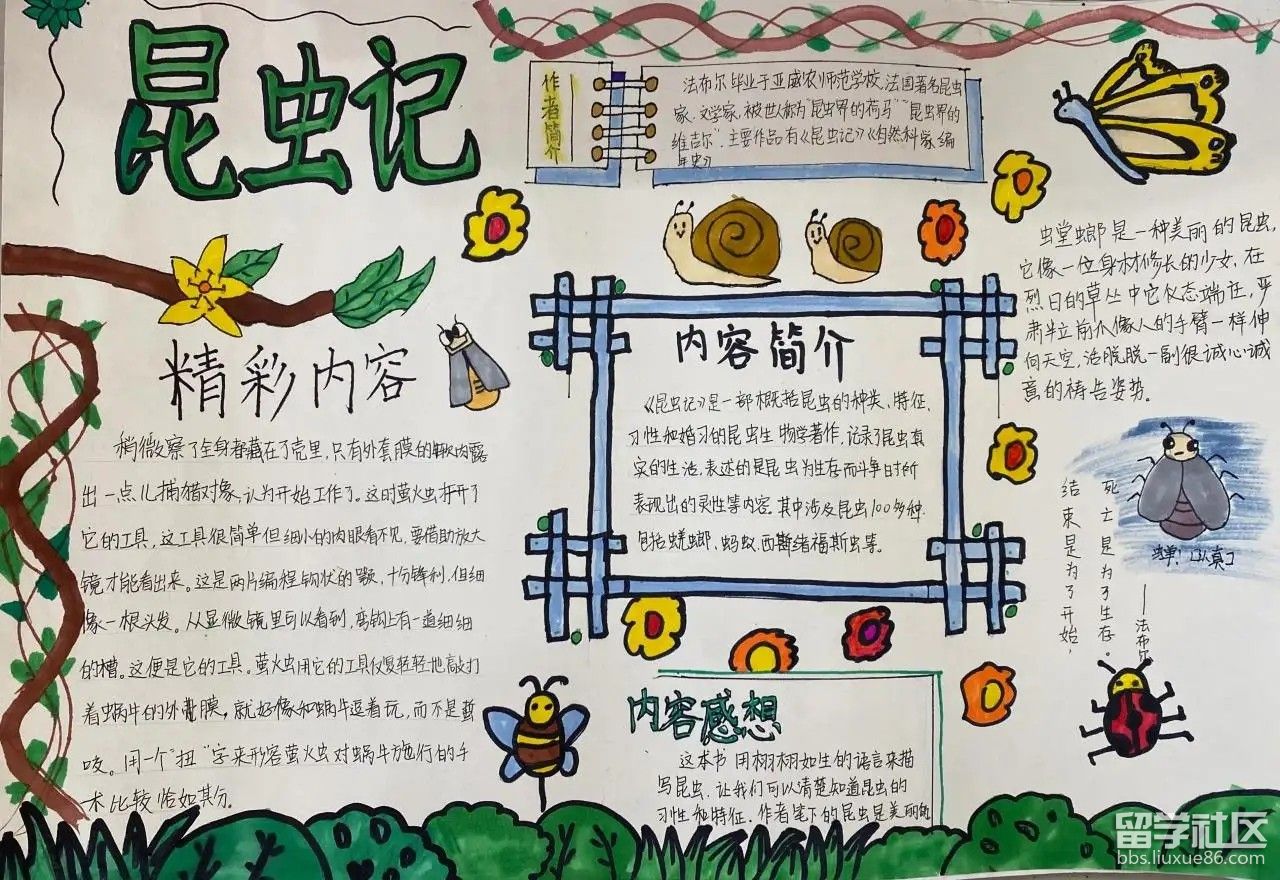 昆虫记
作者简介
法布尔毕业于亚威农师范学校,法国著名昆虫
家、文学家,被世人称为“昆虫界的荷马”“昆虫界的
维吉尔”,主要作品有《昆虫记》《自然科家编
年史》
精彩内容
稍微察了全身都藏在了壳里,只有外套膜的 内露
出一点儿捕猎对象,认为开始工作了。这时萤火虫打开了
它的工具,这工具很简单但细小的肉眼看不见,要借助放大
镜才能看出来。这是两片编程钩状的颚,十分锋利,但细
像一根头发。从显微镜里可以看到,弯钩上有一道细细
的槽。这便是它的工具。萤火虫用它的工具反复轻轻地敲打
着蜗牛的外 膜,就好像和蜗牛逗着玩,而不是蜇
咬。用一个“扭”字来形容萤火虫对蜗牛施行的手
术比较恰如其分。
内容简介
《昆虫记》是一部概括昆虫的种类、特征、
习性和婚习的昆虫生物学著作,记录了昆虫真
实的生活,表述的是昆虫为生存而斗争时所
表现出的灵性等内容,其中涉及昆虫100多种.
包括蜣螂、蚂蚁、西斯绪福斯虫等。
内容感想
这本书用栩栩如生的语言来描
写昆虫,让我们可以清楚知道昆虫的
习性和特征.作者笔下的昆虫是美丽的
螳螂是一种美丽的昆虫,
它像一位身材修长的少女,在
烈日的草丛中它仪态端庄,严
肃半立,前爪像人的手臂一样伸
向天空,活脱脱一副很诚心诚
意的祷告姿势。
蝉!(认真)
死亡是为了生存。
结束是为了开始,
——法布尔
留学社区
bbs.liuxue86.com